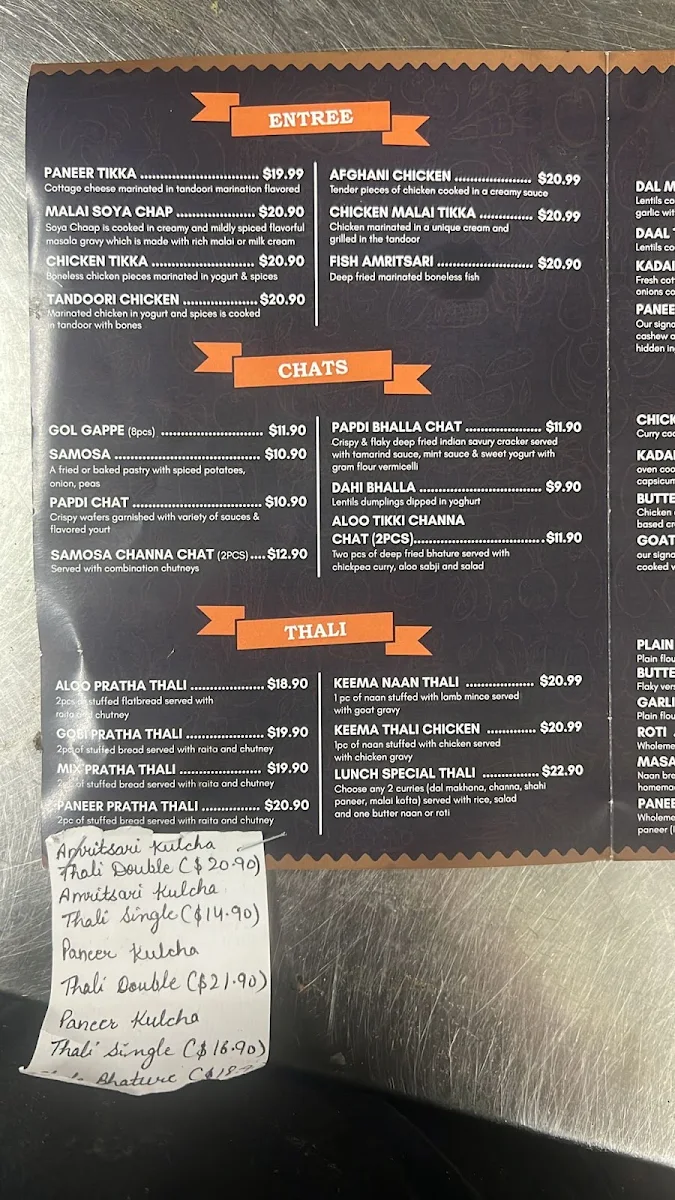 ENTREE
PANEER TIKKA .............................. $19.99
Cottage cheese marinated in tandoori marination flavored
MALAI SOYA CHAP .................... $20.90
Soya Chaap is cooked in creamy and mildly spiced flavorful
masala gravy which is made with rich malai or milk cream
CHICKEN TIKKA .......................... $20.90
Boneless chicken pieces marinated in yogurt & spices
TANDOORI CHICKEN ................... $20.90
Marinated chicken in yogurt and spices is cooked
in tandoor with bones
AFGHANI CHICKEN .................... $20.99
Tender pieces of chicken cooked in a creamy sauce
CHICKEN MALAI TIKKA ..................... $20.99
Chicken marinated in a unique cream and
grilled in the tandoor
FISH AMRITSARI .......................... $20.90
Deep fried marinated boneless fish
CHATS
GOL GAPPE (8pcs) .......................... $11.90
SAMOSA .................................. $10.90
A fried or baked pastry with spiced potatoes,
onion, peas
PAPDI CHAT .............................. $10.90
Crispy wafers garnished with variety of sauces &
flavored yourt
SAMOSA CHANNA CHAT (2PCS) .... $12.90
Served with combination chutneys
PAPDI BHALLA CHAT .................... $11.90
Crispy & flaky deep fried indian savury cracker served
with tamarind sauce, mint sauce & sweet yogurt with
gram flour vermicelli
DAHI BHALLA ............................... $9.90
Lentils dumplings dipped in yoghurt
ALOO TIKKI CHANNA
CHAT (2PCS)................................. $11.90
Two pcs of deep fried bhature served with
chickpea curry, aloo sabji and salad
THALI
ALOO PRATHA THALI ................... $18.90
2pcs of stuffed flatbread served with
raita and chutney
GOBI PRATHA THALI .................... $19.90
2pc of stuffed bread served with raita and chutney
MIX PRATHA THALI ...................... $19.90
2pc of stuffed bread served with raita and chutney
PANEER PRATHA THALI ............... $20.90
2pc of stuffed bread served with raita and chutney
KEEMA NAAN THALI .................. $20.99
1 pc of naan stuffed with lamb mince served
with goat gravy
KEEMA THALI CHICKEN ............. $20.99
1pc of naan stuffed with chicken served
with chicken gravy
LUNCH SPECIAL THALI ............... $22.90
Choose any 2 curries (dal makhona, channa, shahi
paneer, malai kofta) served with rice, salad
and one butter naan or roti
Amritsari Kulcha
Thali Double ($20.90)
Amritsari Kulcha
Thali Single ($14.90)
Paneer Kulcha
Thali Double ($21.90)
Paneer Kulcha
Thali Single ($16.90)
Bhature
DAL
Lentils
garlic
DAAL
Lentils
Fresh
onions
Our
cashew
hidden
Curry
oven
Chicken
based
GOAT
our
cooked
PLAIN
Plain
Flaky
Plain
ROTI
Naan
paneer